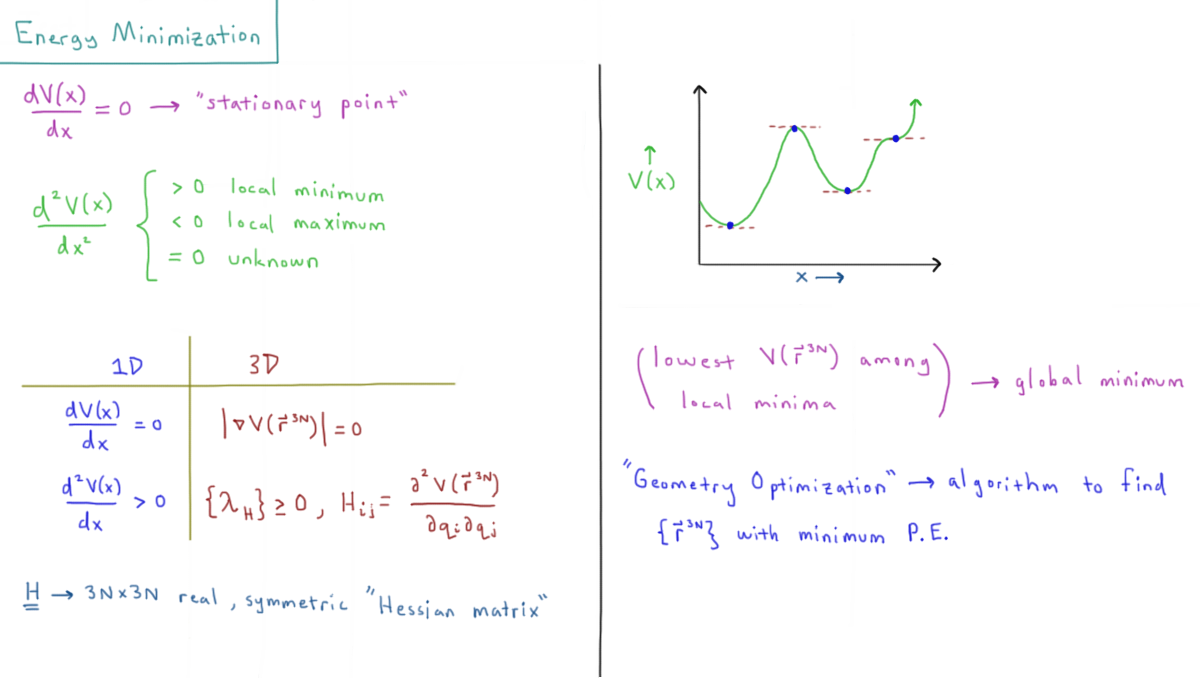 Energy Minimization
dV(x)/dx = 0 → "stationary point"
d²V(x)/dx² { > 0 local minimum
< 0 local maximum
= 0 unknown
1D 3D
dV(x)/dx = 0 |∇V(r⃗³ᴺ)| = 0
d²V(x)/dx > 0 {λ_H} ≥ 0, H_ij = ∂²V(r⃗³ᴺ)/∂q_i∂q_j
H → 3N×3N real, symmetric "Hessian matrix"
↑
V(x)
x →
(lowest V(r⃗³ᴺ) among
local minima) → global minimum
"Geometry Optimization" → algorithm to find
{r⃗³ᴺ} with minimum P.E.